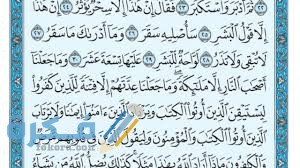 ٢٢ ثُمَّ أَدْبَرَ وَٱسْتَكْبَرَ ٢٣ فَقَالَ إِنْ هَٰذَآ إِلَّا سِحْرٌ يُؤْثَرُ ٢٤ إِنْ هَٰذَآ
إِلَّا قَوْلُ ٱلْبَشَرِ ٢٥ سَأُصْلِيهِ سَقَرَ ٢٦ وَمَآ أَدْرَىٰكَ مَا سَقَرُ ٢٧
لَا تُبْقِى وَلَا تَذَرُ ٢٨ لَوَّاحَةٌ لِّلْبَشَرِ ٢٩ عَلَيْهَا تِسْعَةَ عَشَرَ ٣٠ وَمَا جَعَلْنَآ
أَصْحَٰبَ ٱلنَّارِ إِلَّا مَلَٰٓئِكَةً وَمَا جَعَلْنَا عِدَّتَهُمْ إِلَّا فِتْنَةً لِّلَّذِينَ كَفَرُوا۟
لِيَسْتَيْقِنَ ٱلَّذِينَ أُوتُوا۟ ٱلْكِتَٰبَ وَيَزْدَادَ ٱلَّذِينَ ءَامَنُوٓا۟ إِيمَٰنًا وَلَا يَرْتَابَ
ٱلَّذِينَ أُوتُوا۟ ٱلْكِتَٰبَ وَٱلْمُؤْمِنُونَ وَلِيَقُولَ ٱلَّذِينَ
كَذَٰلِكَ يُضِلُّ ٱللَّهُ مَن يَشَآءُ